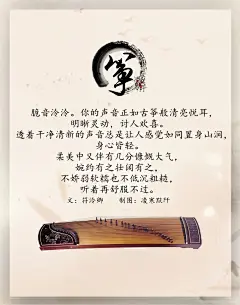 筝
脆音泠泠。你的声音正如古筝般清亮悦耳，
明晰灵动，讨人欢喜。
透着干净清新的声音总是让人感觉如同置身山涧，
身心皆轻。
柔美中又伴有几分慷慨大气，
婉约有之壮阔有之，
不娇弱软糯也不低沉粗糙，
听着再舒服不过。
文：符泠卿 制图：凌寒默阡